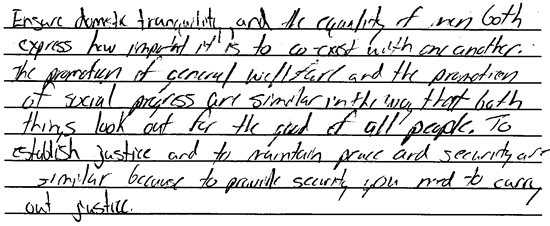 Ensure domestic tranquility, and the equality of men both
express how important it is to co-exist with one another.
The promotion of general wellfare and the promotion
of social progress are similar in the way that both
things look out for the good of all people. To
establish justice and to maintain peace and security are
similar because to provide security you need to carry
out justice.